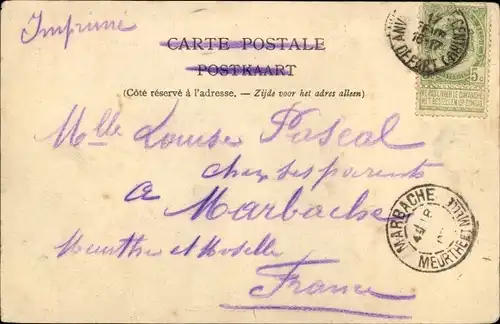 Imprimé
CARTE POSTALE
POSTKAART
(Côté réservé à l'adresse. — Zijde voor het adres alleen)
Mlle Louise Pascal
chez ses parents
à Marbache
Meurthe et Moselle
France
5c
NE PAS LIVRER LE DIMANCHE
NIET BESTELLEN OP ZONDAG
DEPART
MARBACHE
MEURTHE ET MELLE